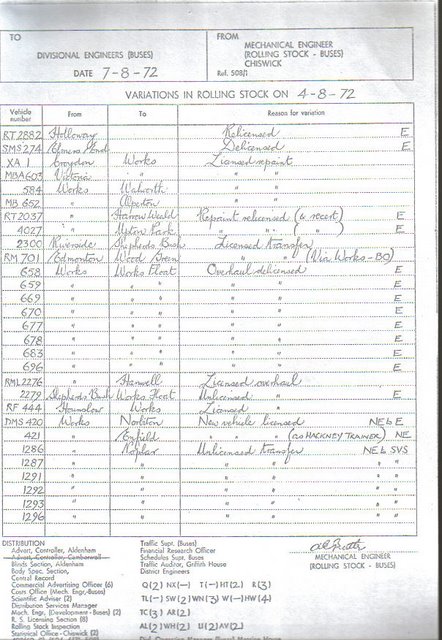 TO
DIVISIONAL ENGINEERS (BUSES)
DATE 7-8-72
FROM
MECHANICAL ENGINEER
(ROLLING STOCK - BUSES)
CHISWICK
Ref. 508/1
VARIATIONS IN ROLLING STOCK ON 4-8-72
Vehicle number From To Reason for variation
RT2882 Holloway Relicensed E
SMS274 Delicensed E
XA 1 Croydon Works Licensed repaint
MBA603 Victoria " " "
584 Works Walworth " "
MB 652 " Alperton " "
RT2037 " Harrow Weald Repaint relicensed (& recert) E
4027 " Upton Park " " ( " ) E
2300 Riverside Shepherds Bush Licensed transfer
RM 701 Edmonton Wood Green " " (Via Works-BO)
658 Works Works Float Overhaul delicensed E
659 " " " " " E
669 " " " " " E
670 " " " " " E
677 " " " " " E
678 " " " " " E
683 " " " " " E
696 " " " " " E
RML2276 " Hanwell Licensed overhaul
2279 Shepherds Bush Works Float Unlicensed " E
RF 444 Hounslow Works Licensed "
DMS 420 Works Norbiton New vehicle licensed NE & E
421 " Enfield " " " (as HACKNEY TRAINER) NE
1286 " Poplar Unlicensed transfer NE & SVS
1287 " " " " " "
1291 " " " " " "
1292 " " " " " "
1293 " " " " " "
1296 " " " " " "
DISTRIBUTION
Advert. Controller, Aldenham
Advert. Controller, Camberwell
Blinds Section, Aldenham
Body Spec. Section,
Central Record
Commercial Advertising Officer (6)
Costs Office (Mech. Engr.-Buses)
Scientific Adviser (2)
Distribution Services Manager
Mech. Engr. (Development - Buses) (2)
R.S. Licensing Section (8)
Rolling Stock Inspection
Statistical Office - Chiswick (2)
Traffic Supt. (Buses)
Financial Research Officer
Schedules Supt. Buses
Traffic Auditor, Griffith House
District Engineers
Q(2) NX(—) T(—) HT(2) R(3)
TL(—) SW(2) WN(3) W(—) HW(4)
TC(3) AR(2)
AL(2) WH(2) U(2) AV(2)
MECHANICAL ENGINEER
(ROLLING STOCK - BUSES)